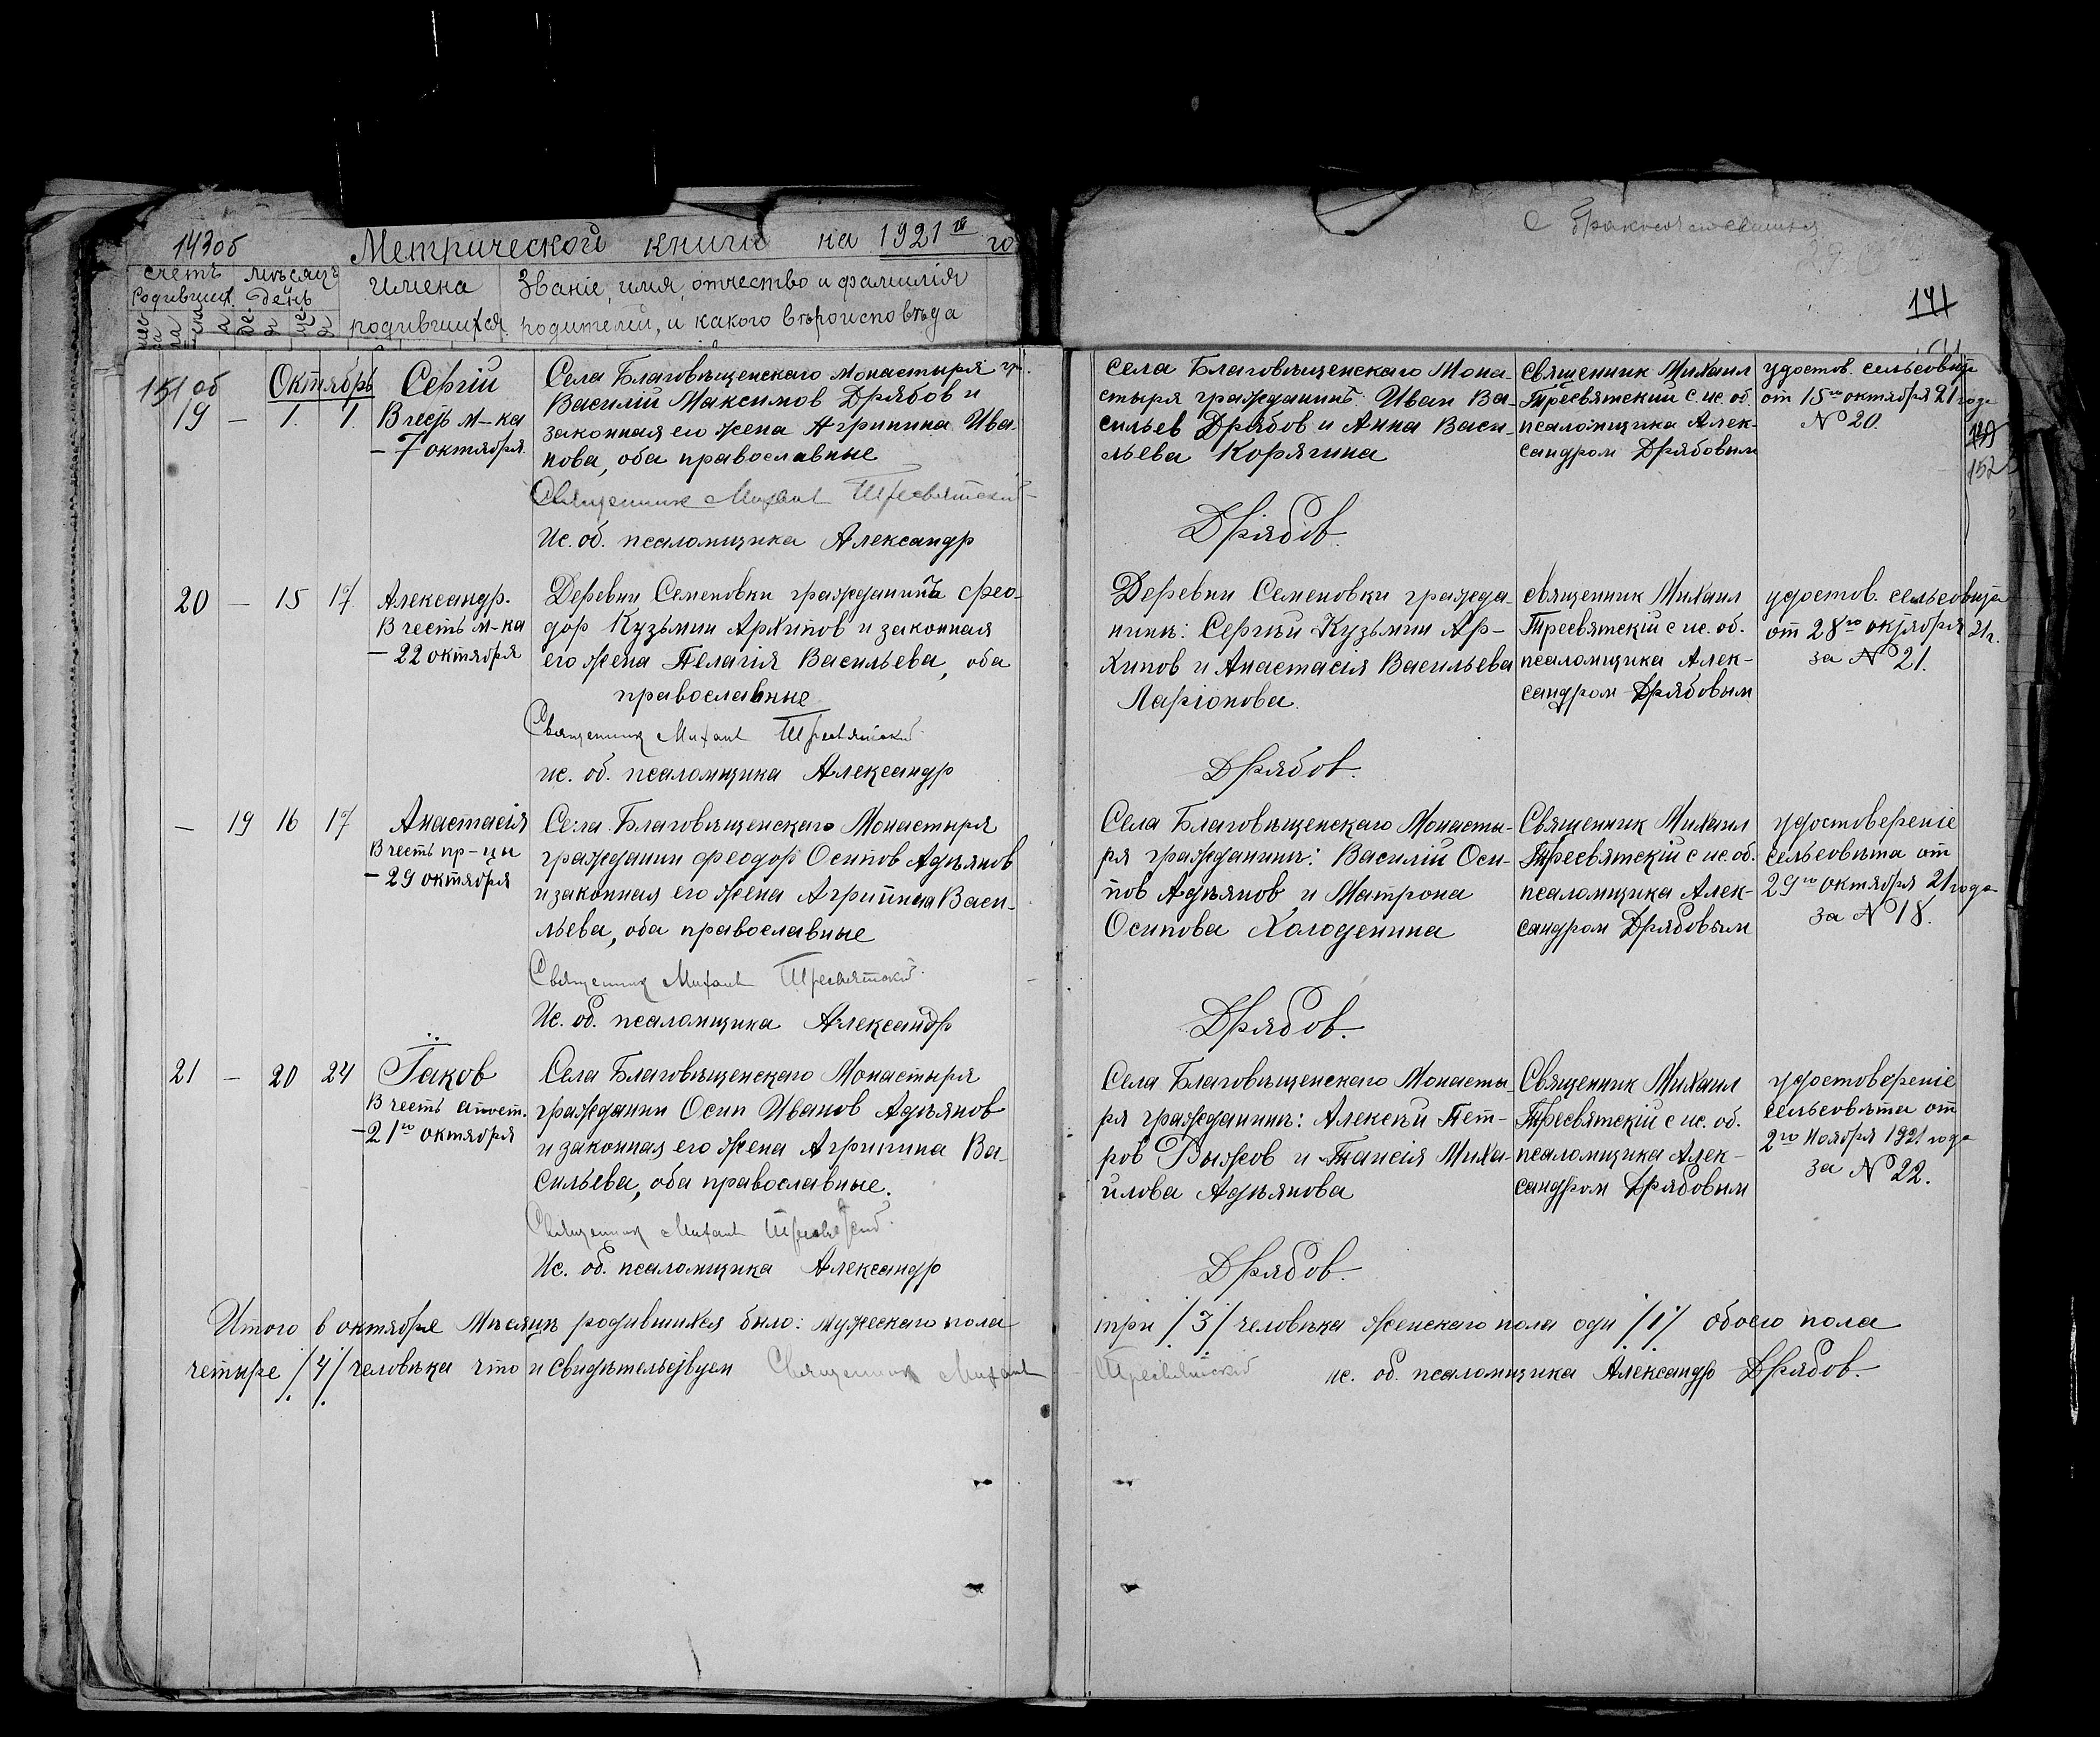 143об
Метрической книги на 1921 го
счетъ
родивших.
мѣсяцъ
день
Имена
родившихся
Званіе, имя, отчество и фамилія
родителей, и какого вѣроисповѣда
141
151 об
Октябрь
19 — 1. 1.
Сергій
В честь м-ка
— 7 октября
Села Благовѣщенскаго Монастыря гр.
Василій Максимов Дрябов и
законная его жена Агрипина Ива-
нова, оба православные
Священник Михаил Тресвятский
Ис. об. псаломщика Александр
села Благовѣщенскаго Мона-
стыря гражданинъ: Иван Ва-
сильев Дрябов и Анна Васи-
льева Корягина
Дрябов.
священник Михаил
Тресвятский с ис. об.
псаломщика Алек-
сандром Дрябовым
удостов. сельсовѣта
от 15го октября 21 года
№ 20.
152
20 — 15 17
Александр.
В честь м-ка
— 22 октября
Деревни Семеновки гражданинъ Фео-
дор Кузьмин Архипов и законная
его жена Пелагія Васильева, оба
православные
Священник Михаил Тресвятский
ис. об. псаломщика Александр
Деревни Семеновки гражда-
нинъ: Сергѣй Кузьмин Ар-
хипов и Анастасія Васильева
Ларіонова.
Дрябов.
священник Михаил
Тресвятскій с ис. об.
псаломщика Алек-
сандром Дрябовым
удостов. сельсовѣта
от 28го октября 21г.
за № 21.
— 19 16 17
Анастасія
В честь пр-цы
— 29 октября
Села Благовѣщенскаго Монастыря
гражданин Феодор Осипов Адъянов
и законная его жена Агрипина Васи-
льева, оба православные
Священник Михаил Тресвятский
Ис. об. псаломщика Александр
Села Благовѣщенскаго Монасты-
ря гражданинъ: Василій Оси-
пов Адъянов и Матрона
Осипова Холоденина
Дрябов.
Священник Михаил
Тресвятскій с ис. об.
псаломщика Алек-
сандром Дрябовым
удостовереніе
сельсовѣта от
29го октября 21 года
за № 18.
21 — 20 24
Іаков
В честь апост.
— 21го октября
Села Благовѣщенскаго Монастыря
гражданин Осип Иванов Адъянов
и законная его жена Агрипина Ва-
сильева, оба православные.
Священник Михаил Тресвятский
Ис. об. псаломщика Александр
Села Благовѣщенскаго Монасты
ря гражданинъ: Алексѣй Пет-
ров Выжов и Таисія Миха-
илова Адъянова
Дрябов.
Священник Михаил
Тресвятскій с ис. об.
псаломщика Алек-
сандром Дрябовым
удостовереніе
сельсовѣта от
2го Ноября 1921 года
за № 22.
Итого в октябре Мѣсяцъ родившихся было: мужескаго пола три /3/ человѣка женскаго пола одн /1/ обоего пола
четыре /4/ человѣка что и свидѣтельствуем Священник Михаил Тресвятский ис. об. псаломщика Александр Дрябов.